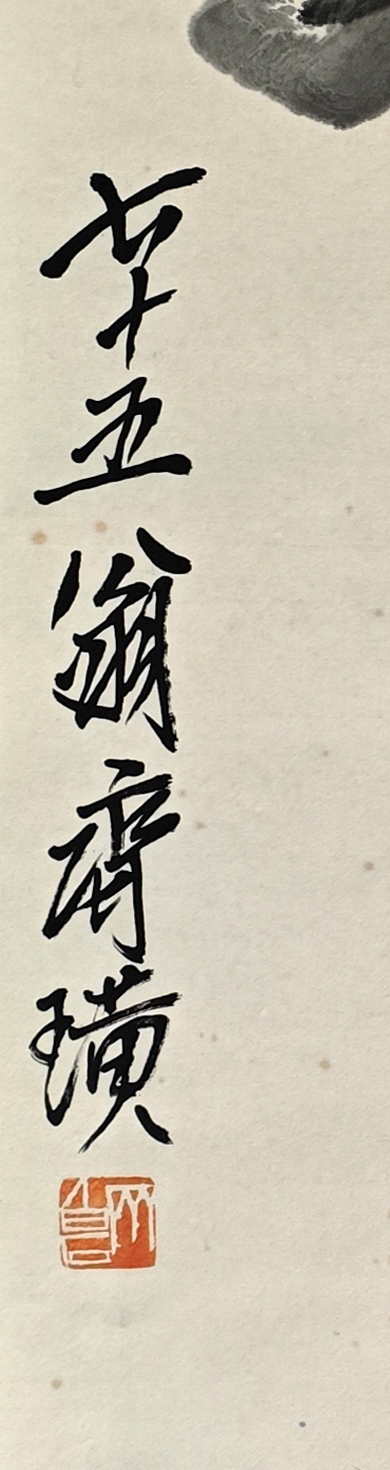 七十五翁齊璜